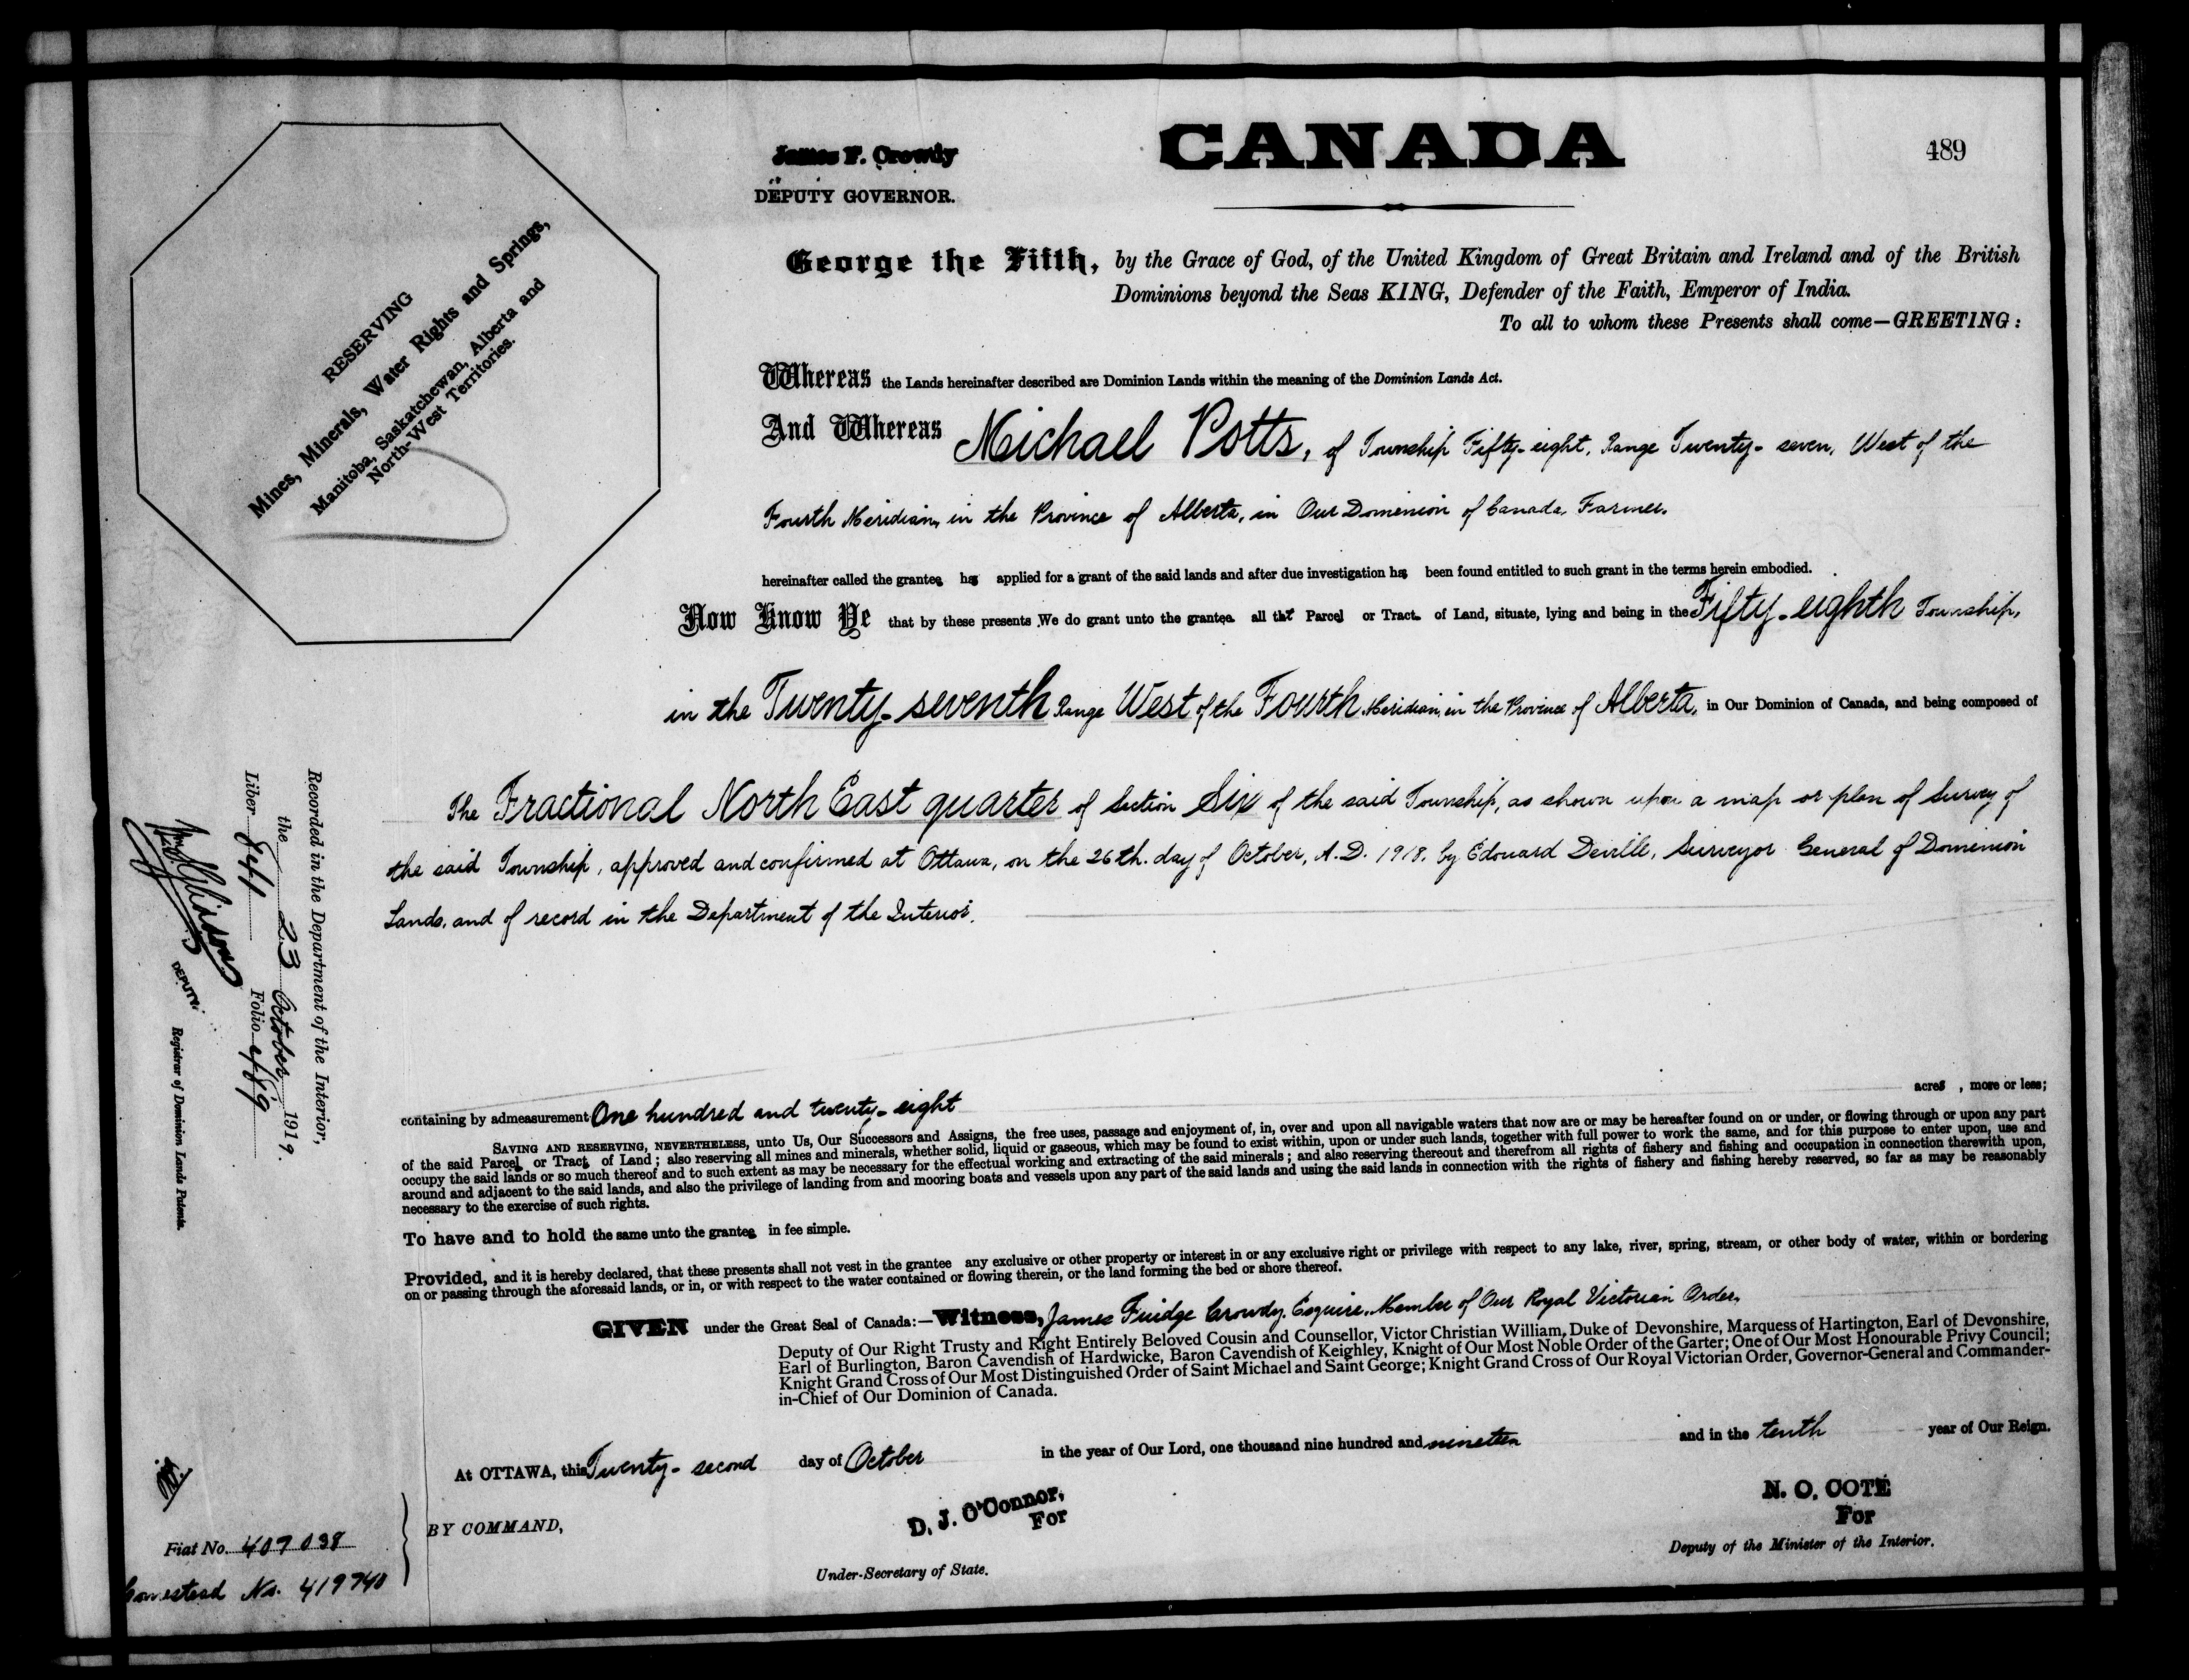 CANADA
489
James F. Crowdy
DEPUTY GOVERNOR.
RESERVING
Mines, Minerals, Water Rights and Springs,
Manitoba, Saskatchewan, Alberta and
North-West Territories.
George the Fifth, by the Grace of God, of the United Kingdom of Great Britain and Ireland and of the British
Dominions beyond the Seas KING, Defender of the Faith, Emperor of India.
To all to whom these Presents shall come—GREETING:
Whereas the Lands hereinafter described are Dominion Lands within the meaning of the Dominion Lands Act.
And Whereas Michael Potts, of Township Fifty-eight, Range Twenty-seven, West of the
Fourth Meridian, in the Province of Alberta, in Our Dominion of Canada, Farmer,
hereinafter called the grantee has applied for a grant of the said lands and after due investigation has been found entitled to such grant in the terms herein embodied.
Now Know Ye that by these presents We do grant unto the grantee all that Parcel or Tract of Land, situate, lying and being in the Fifty-eighth Township,
in the Twenty-seventh Range West of the Fourth Meridian, in the Province of Alberta, in Our Dominion of Canada, and being composed of
The Fractional North East quarter of Section Six of the said Township, as shown upon a map or plan of Survey of
the said Township, approved and confirmed at Ottawa, on the 26th. day of October, A.D. 1918, by Edouard Deville, Surveyor General of Dominion
Lands, and of record in the Department of the Interior.
containing by admeasurement One hundred and twenty-eight acres, more or less;
SAVING AND RESERVING, NEVERTHELESS, unto Us, Our Successors and Assigns, the free uses, passage and enjoyment of, in, over and upon all navigable waters that now are or may be hereafter found on or under, or flowing through or upon any part
of the said Parcel or Tract of Land; also reserving all mines and minerals, whether solid, liquid or gaseous, which may be found to exist within, upon or under such lands, together with full power to work the same, and for this purpose to enter upon, use and
occupy the said lands or so much thereof and to such extent as may be necessary for the effectual working and extracting of the said minerals; and also reserving thereout and therefrom all rights of fishery and fishing and occupation in connection therewith upon,
around and adjacent to the said lands, and also the privilege of landing from and mooring boats and vessels upon any part of the said lands and using the said lands in connection with the rights of fishery and fishing hereby reserved, so far as may be reasonably
necessary to the exercise of such rights.
To have and to hold the same unto the grantee in fee simple.
Provided, and it is hereby declared, that these presents shall not vest in the grantee any exclusive or other property or interest in or any exclusive right or privilege with respect to any lake, river, spring, stream, or other body of water, within or bordering
on or passing through the aforesaid lands, or in, or with respect to the water contained or flowing therein, or the land forming the bed or shore thereof.
GIVEN under the Great Seal of Canada:—Witness, James Fuidge Crowdy, Esquire, Member of Our Royal Victorian Order,
Deputy of Our Right Trusty and Right Entirely Beloved Cousin and Counsellor, Victor Christian William, Duke of Devonshire, Marquess of Hartington, Earl of Devonshire,
Earl of Burlington, Baron Cavendish of Hardwicke, Baron Cavendish of Keighley, Knight of Our Most Noble Order of the Garter; One of Our Most Honourable Privy Council;
Knight Grand Cross of Our Most Distinguished Order of Saint Michael and Saint George; Knight Grand Cross of Our Royal Victorian Order, Governor-General and Commander-
in-Chief of Our Dominion of Canada.
At OTTAWA, this Twenty-second day of October in the year of Our Lord, one thousand nine hundred and nineteen and in the tenth year of Our Reign.
BY COMMAND,
D. J. O'Connor,
For
Under-Secretary of State.
N. O. COTE
For
Deputy of the Minister of the Interior.
Recorded in the Department of the Interior,
the 23 October 1919,
Liber 841 Folio 489
DEPUTY
Registrar of Dominion Lands Patents.
Fiat No. 407098
Homestead No. 419740